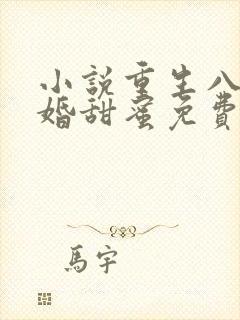 小說重生八
婚甜蜜免費
馬宇